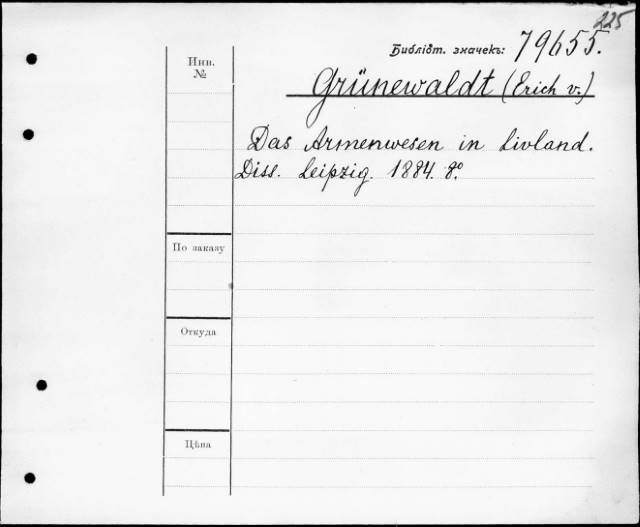 225
Библіот. значекъ: 79655.
Инв.
№
Grünewaldt (Erich v.)
Das Armenwesen in Livland.
Diss. Leipzig. 1884. 8°.
По заказу
Откуда
Цѣна